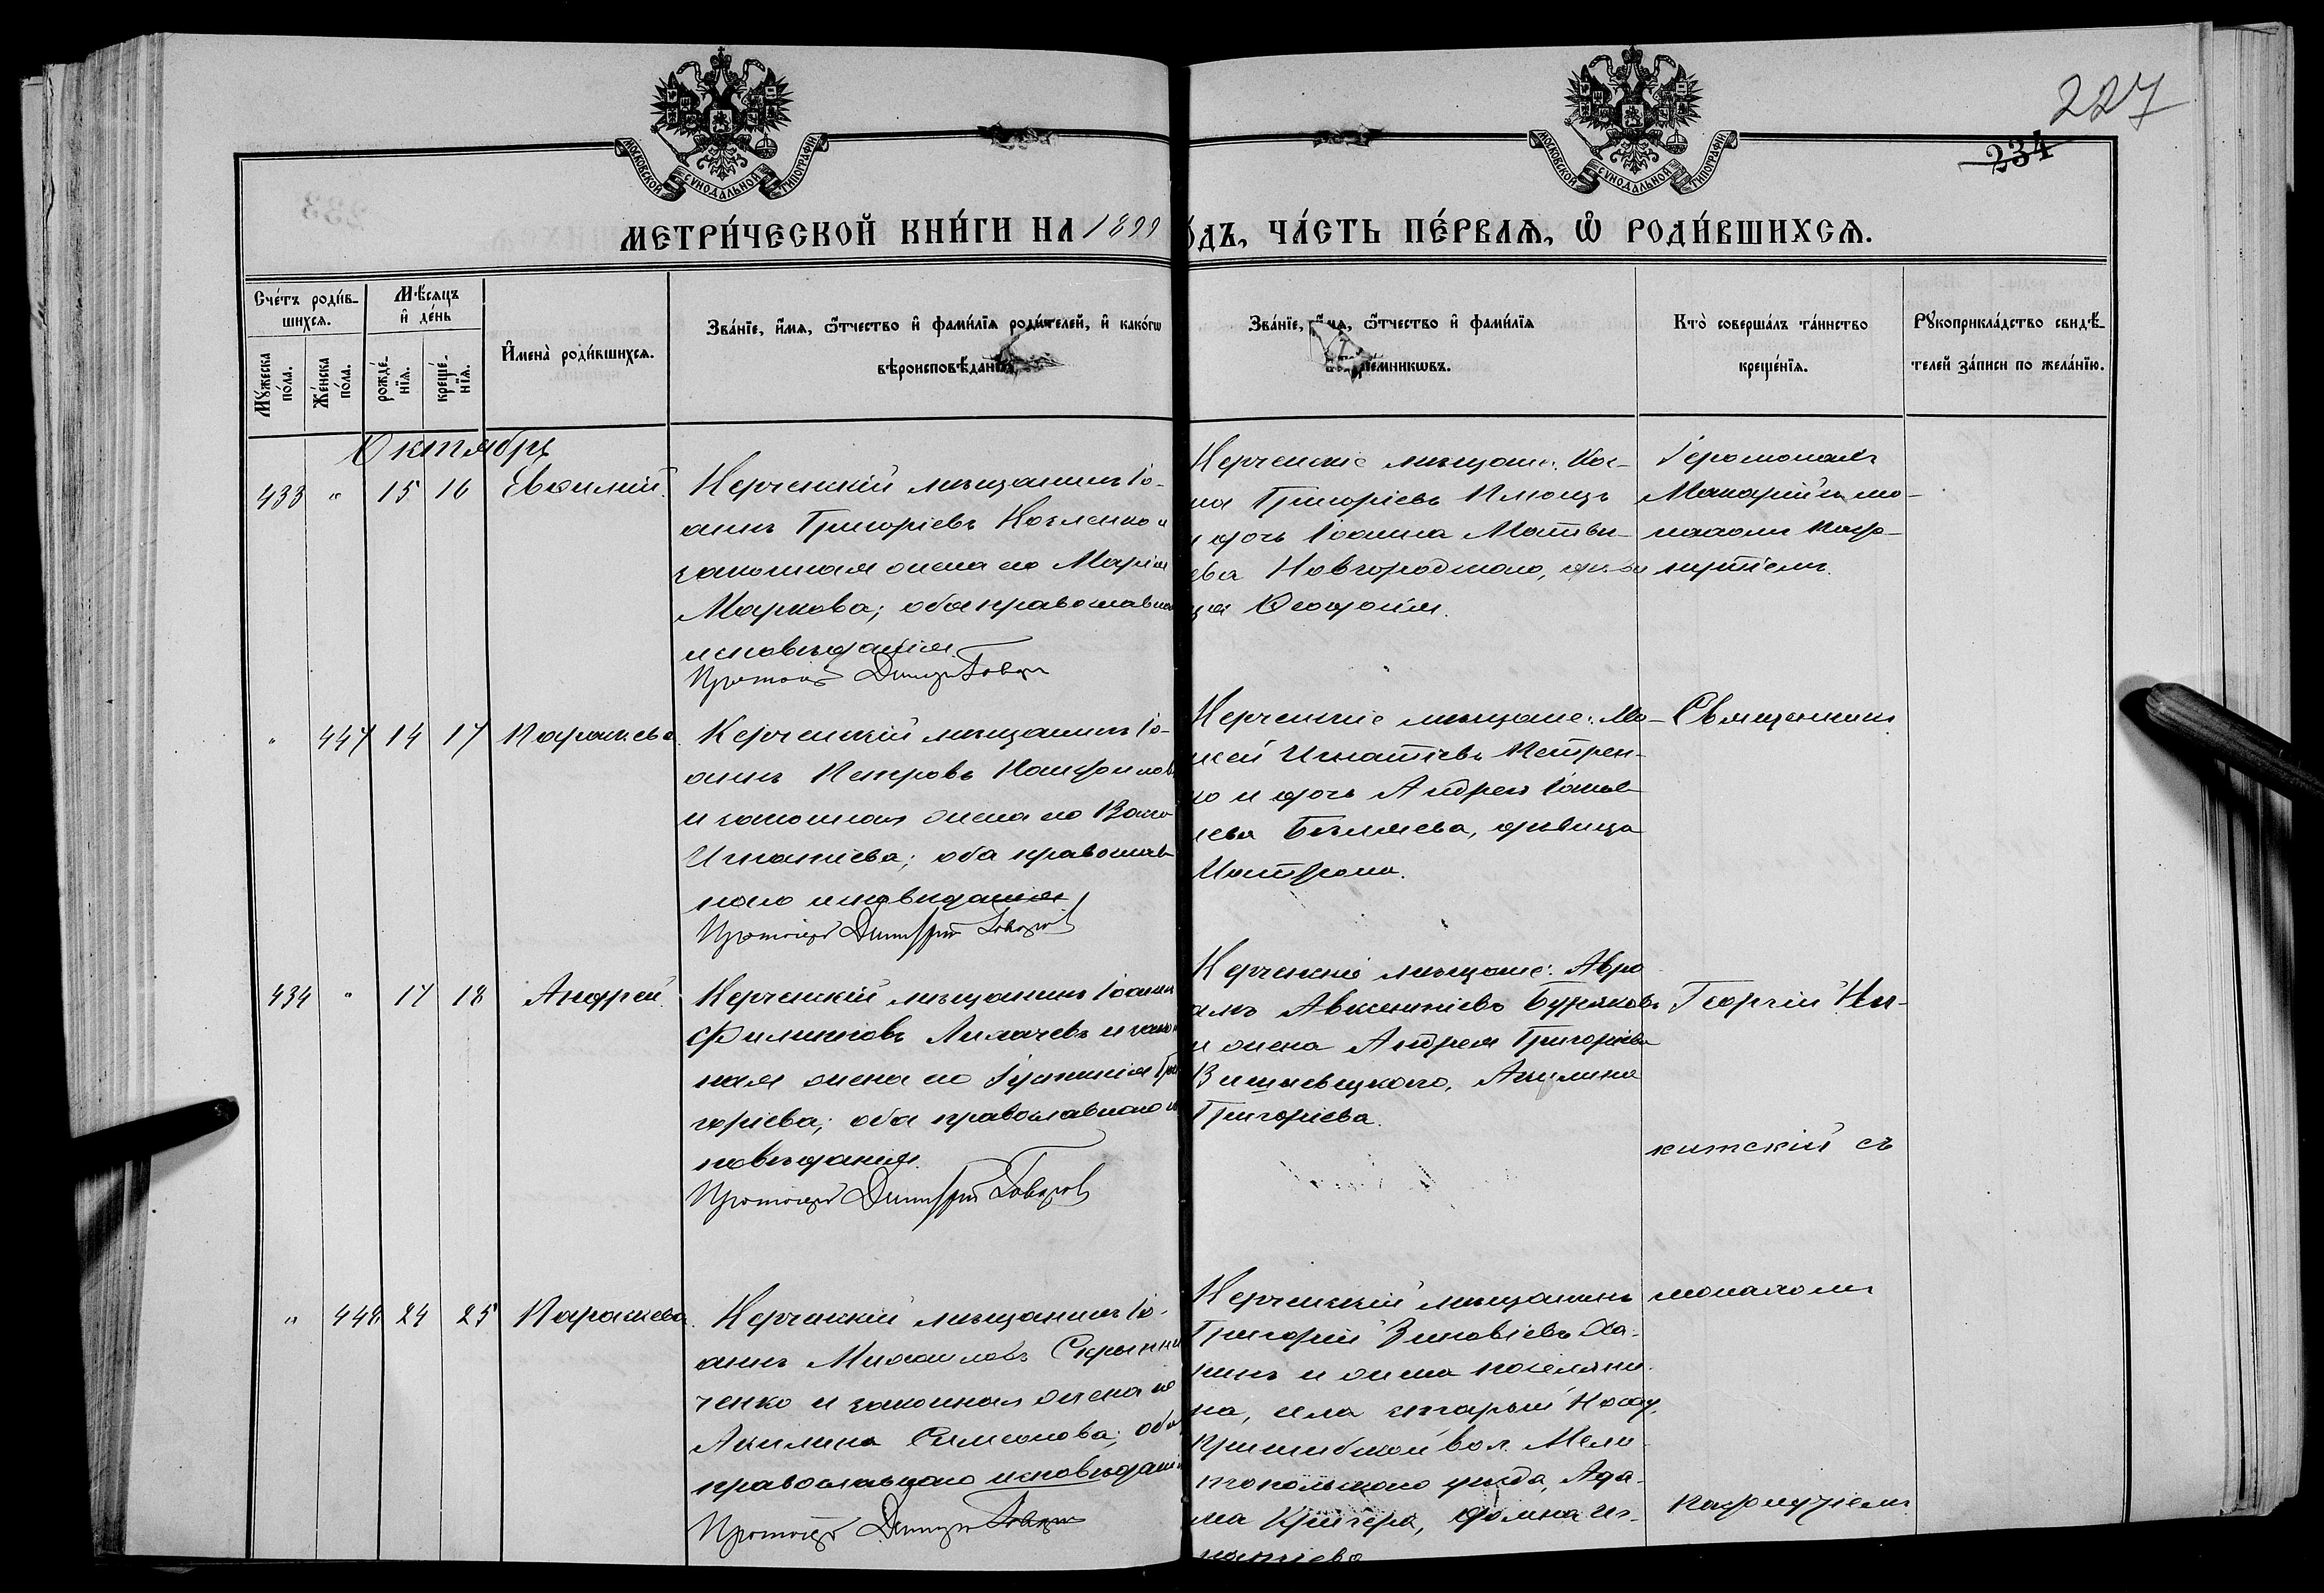 МОСКОВСКОЙ СѴНОДАЛЬНОЙ ТИПОГРАФІИ
МОСКОВСКОЙ СѴНОДАЛЬНОЙ ТИПОГРАФІИ
227
234
МЕТРИ́ЧЕСКОЙ КНИ́ГИ НА 1899
ѻ́дъ, ЧА́СТЬ ПЕ́РВАѦ, Ѽ РОДИ́ВШИХСѦ.
Сче́тъ роди́в-
шихсѧ.
Мꙋ́жеска по́ла.
Же́нска по́ла.
Мѣ́сѧцъ
и҆ де́нь
рожде́-нїѧ.
креще́-нїѧ.
И҆мена̀ роди́вшихсѧ.
Зва́нїе, и҆́мѧ, ѻ҆́тчество и҆ фами́лїѧ роди́телей, и҆ како́гѡ
вѣроисповѣ́данїѧ.
Зва́нїе, и҆́мѧ, ѻ҆́тчество и҆ фами́лїѧ
емникѡвъ.
Кто̀ соверша́лъ та́инство
креще́нїѧ.
Рꙋкоприкла́дство свидѣ́-
телей за́писи по жела́нїю.
Октябрь
433 " 15 16 Евѳимій.
Керченскій мѣщанинъ Іо-
аннъ Григоріевъ и
законная жена его Марія
Маркова; оба православнаго
исповѣданія.
Протоіер Димитр
Керченскіе мѣщане: Кос-
ма Григоріевъ Клюцъ
и дочь Іоанна Матвѣ-
ева Новгородскаго, дѣви
ца Ѳеодосія.
Іеромонахъ
Макарій съ мо-
нахомъ Паф-
нутіемъ.
" 447 14 17 Параскева.
Керченскій мѣщанинъ Іо-
аннъ Петровъ Панфиловъ
и законная жена его Васса
Игнатіева; оба православ-
наго исповѣданія
Протоіерей Димитрій
Керченскіе мѣщане: Мо-
исей Игнатіевъ Петрен-
ко и дочь Андрея Іаков-
лева Бѣляева, дѣвица
Матрона.
Священникъ
434 " 17 18 Андрей.
Керченскій мѣщанинъ Іоаннъ
Филипповъ Лихачевъ и закон
ная жена его Іустинія Гри
горіева; оба православнаго ис
повѣданія.
Протоіерей Димитрій
Керченскіе мѣщане: Авра
амъ Авксентіевъ Буряковъ
и жена Андрея Григоріева
Вишневецкого, Акилина
Григоріева.
Георгій Ни-
китскій съ
" 448 24 25 Параскева.
Керченскій мѣщанинъ Іо-
аннъ Михаиловъ Скрыпни
ченко и законная жена его
Акилина Симеонова; оба
православнаго исповѣданія
Протоіер Димитр
Керченскій мѣщанинъ
Григорій Зиновіевъ Ха-
нинъ и жена поселяни
на, села старый
Пришибской вол. Мели
топольскаго уѣзда, Ада-
ма Кригера, Домна Иг-
натіева
монахомъ
Пафнутіемъ.